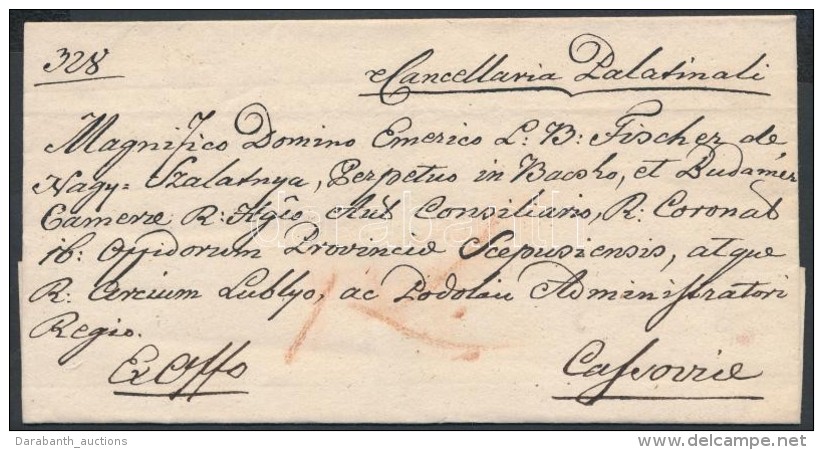 328
Cancellaria Palatinali
Magnifico Domino Emerico L: B: Fischer de
Nagy= Szalatnya, Perpetuo in Bacsko, et Budamer
Cameræ R: Consiliario, R: Coronat
16: Oppidorum Provinciæ Scepusiensis, atque
R: Arcium Lublyo, ac Podolin Administratori
Regio.
Ex Offo
Cassoviæ
darabanth
Darabanth_auctions
www.delcampe.net